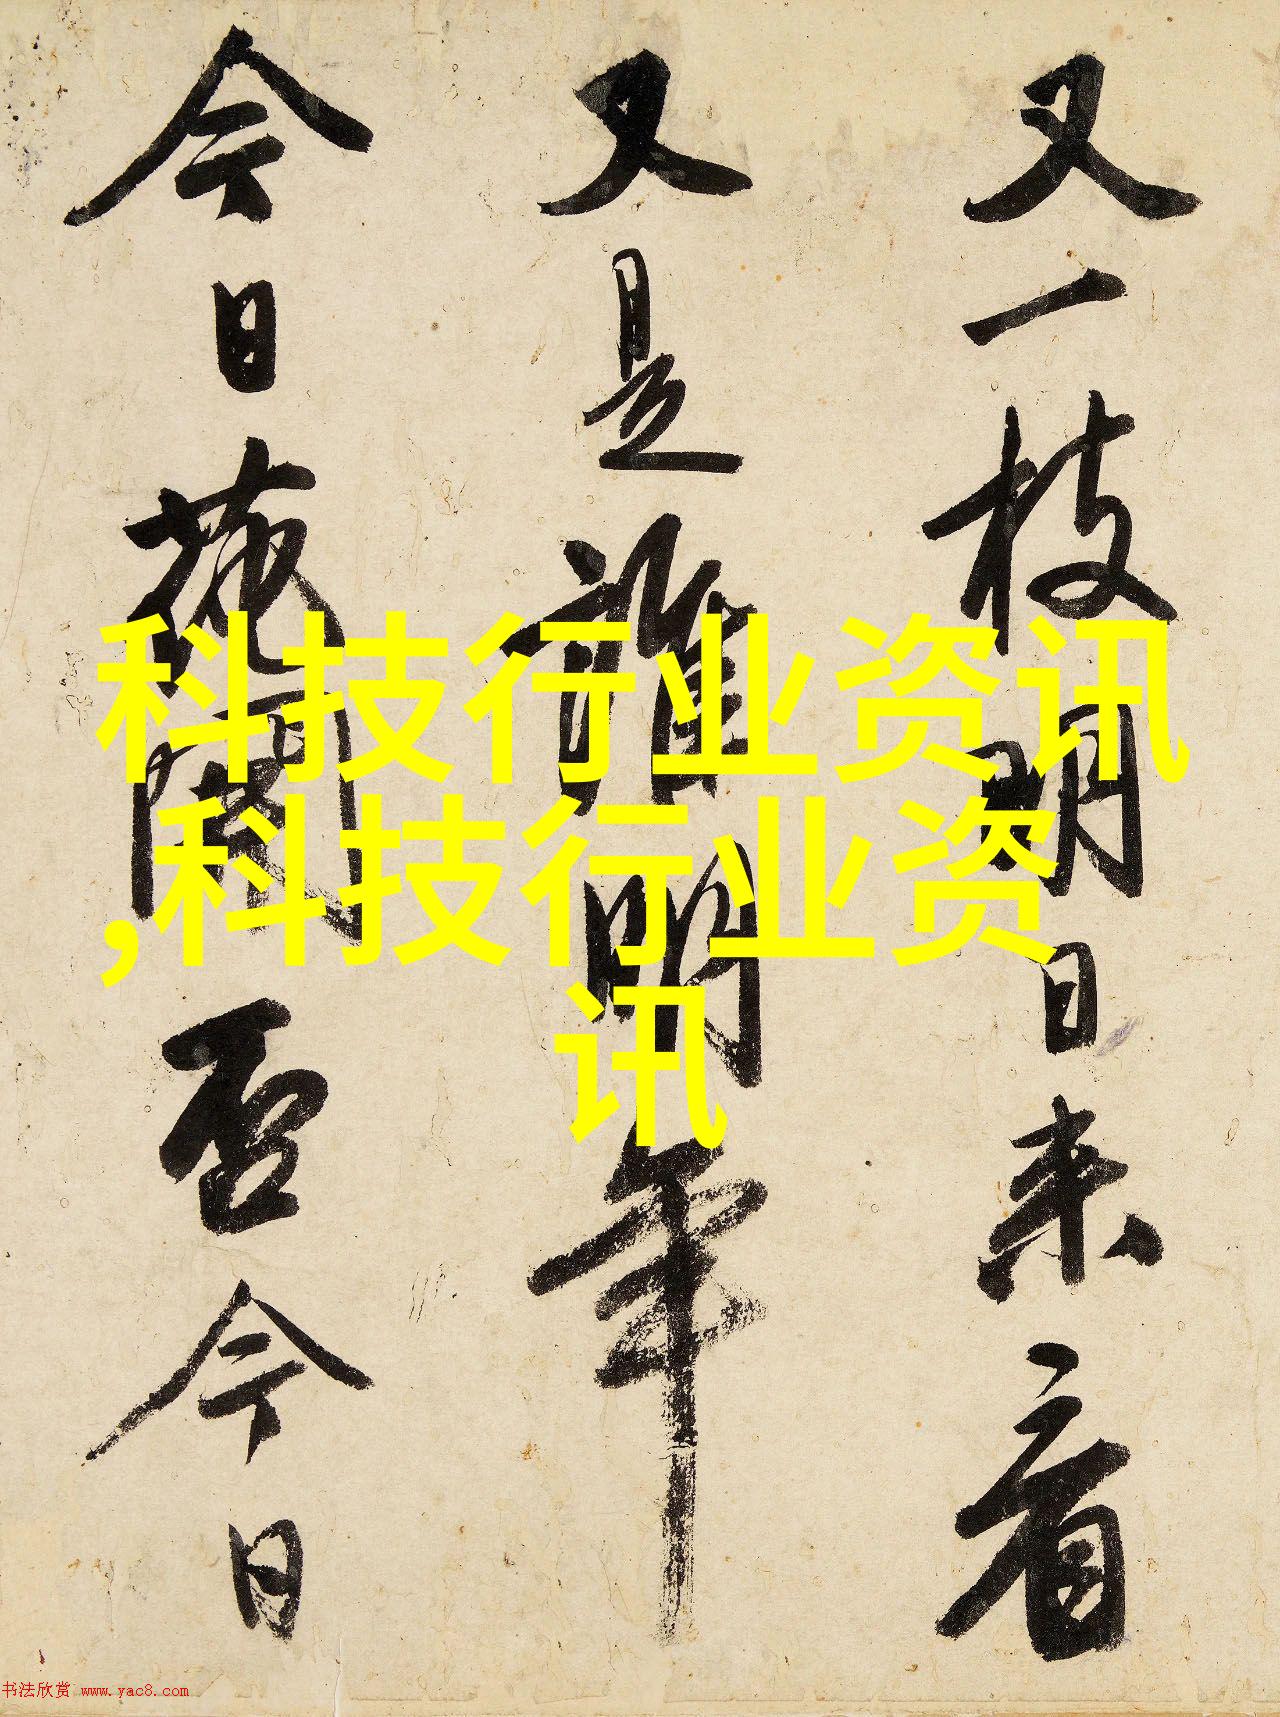 又一枝明日来看
又是誰明年
今日荒闌否今日
科技行业资讯
,科技行业资
讯
书法欣赏 www.yac8.com